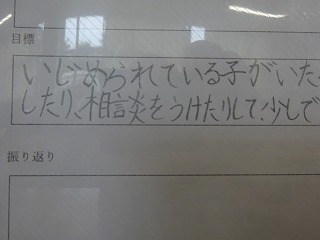 目標
いじめられている子がいた
したり、相談をうけたりして、少しで
振り返り